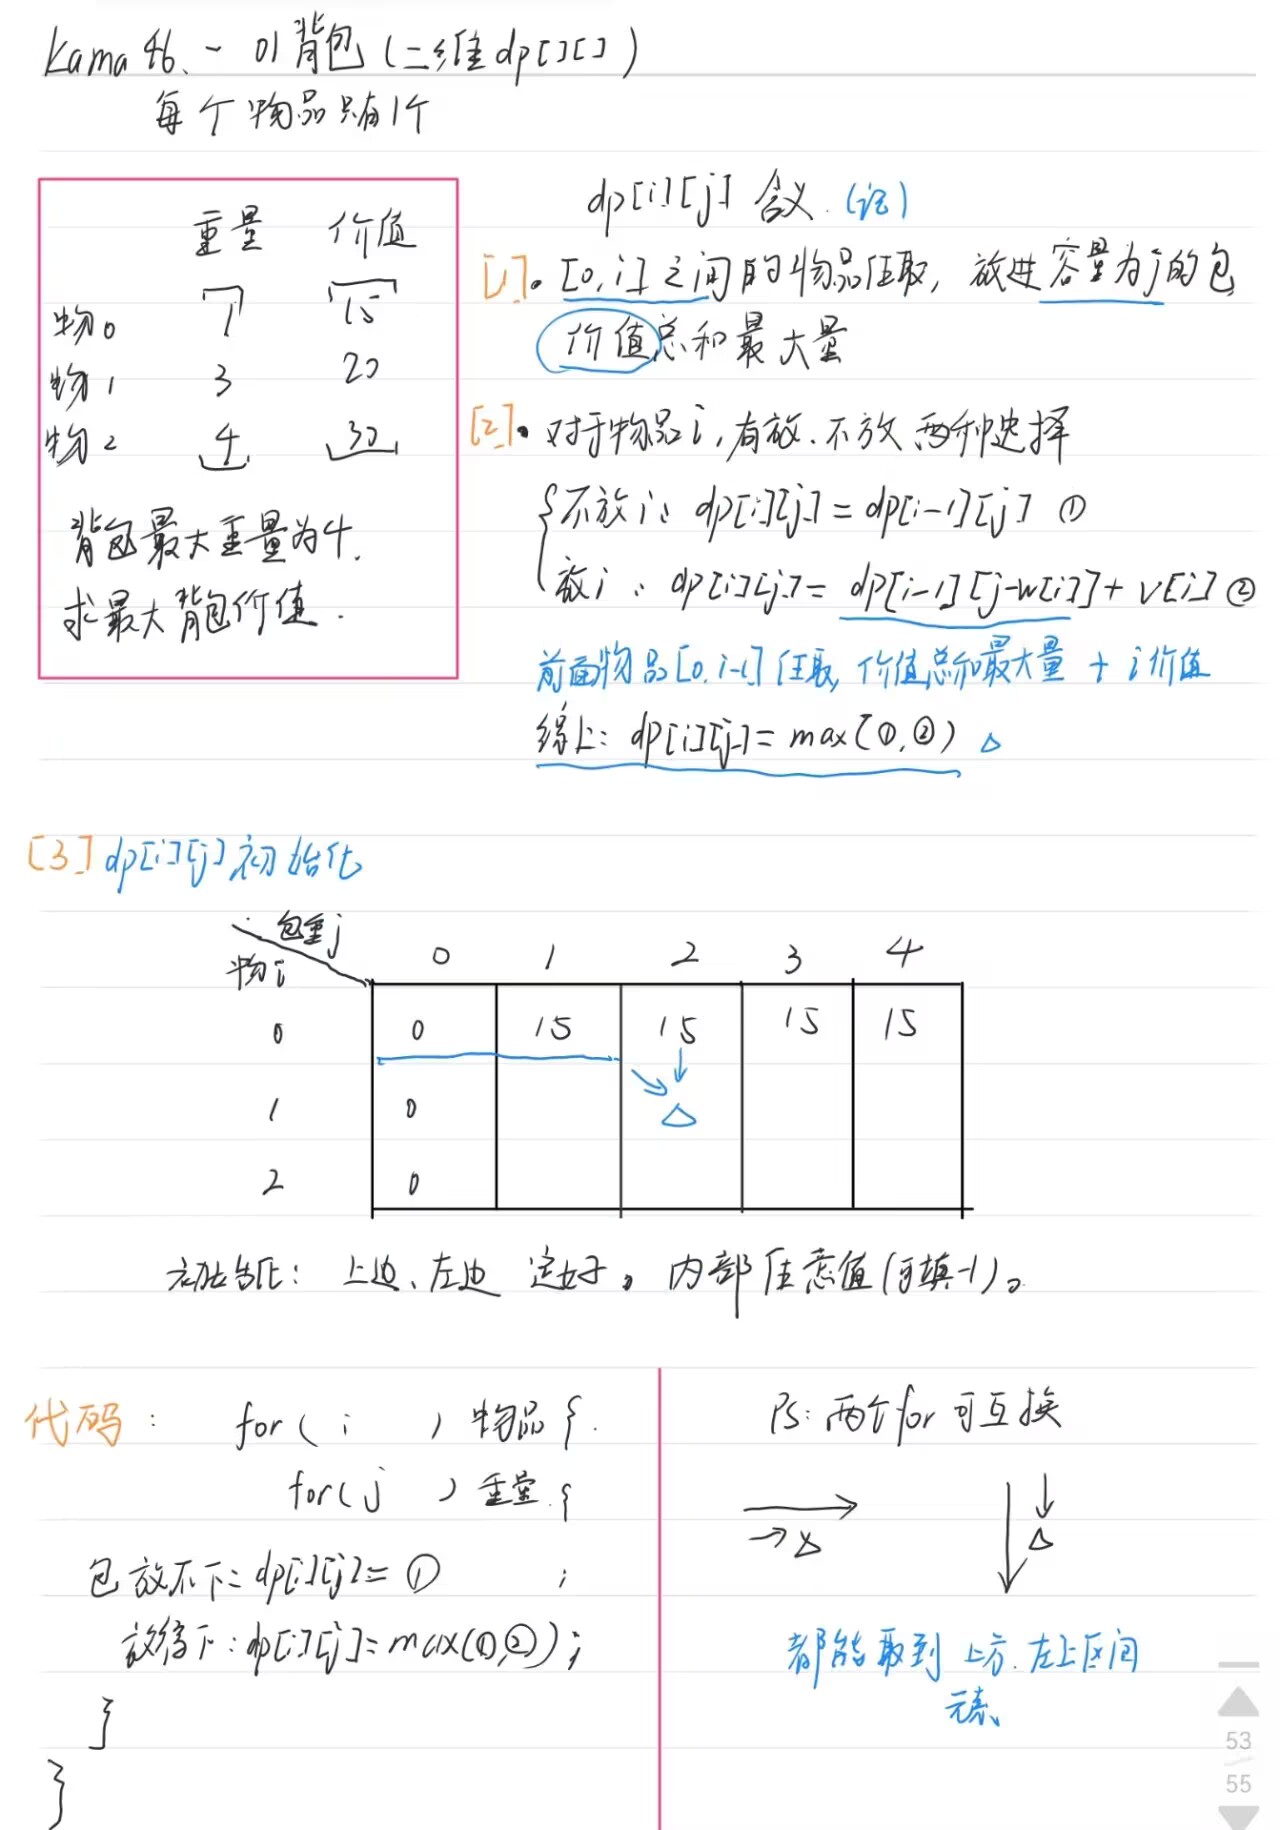 kama 46. - 01背包 (二维dp[][])
每个物品只有1个
重量 价值
物0 1 15
物1 3 20
物2 4 30
背包最大重量为4.
求最大背包价值.
dp[i][j] 含义. (记)
[1]. [0, i] 之间的物品任取, 放进容量为j的包
价值总和最大量
[2]. 对于物品i, 有放、不放 两种选择
不放i: dp[i][j] = dp[i-1][j] ①
放i: dp[i][j] = dp[i-1][j-w[i]] + v[i] ②
前面物品[0, i-1]任取, 价值总和最大量 + i价值
综上: dp[i][j] = max(①,②) △
[3] dp[i][j] 初始化
包重j
物i 0 1 2 3 4
0 0 15 15 15 15
1 0 △
2 0
初始化: 上边、左边 定好。内部任意值(可填-1)。
代码: for( i ) 物品 {
for( j ) 重量 {
包放不下: dp[i][j] = ① ;
放得下: dp[i][j] = max(①,②);
}
}
PS: 两个for可互换
△ △
都能取到 上方、左上区间
元素
53
55